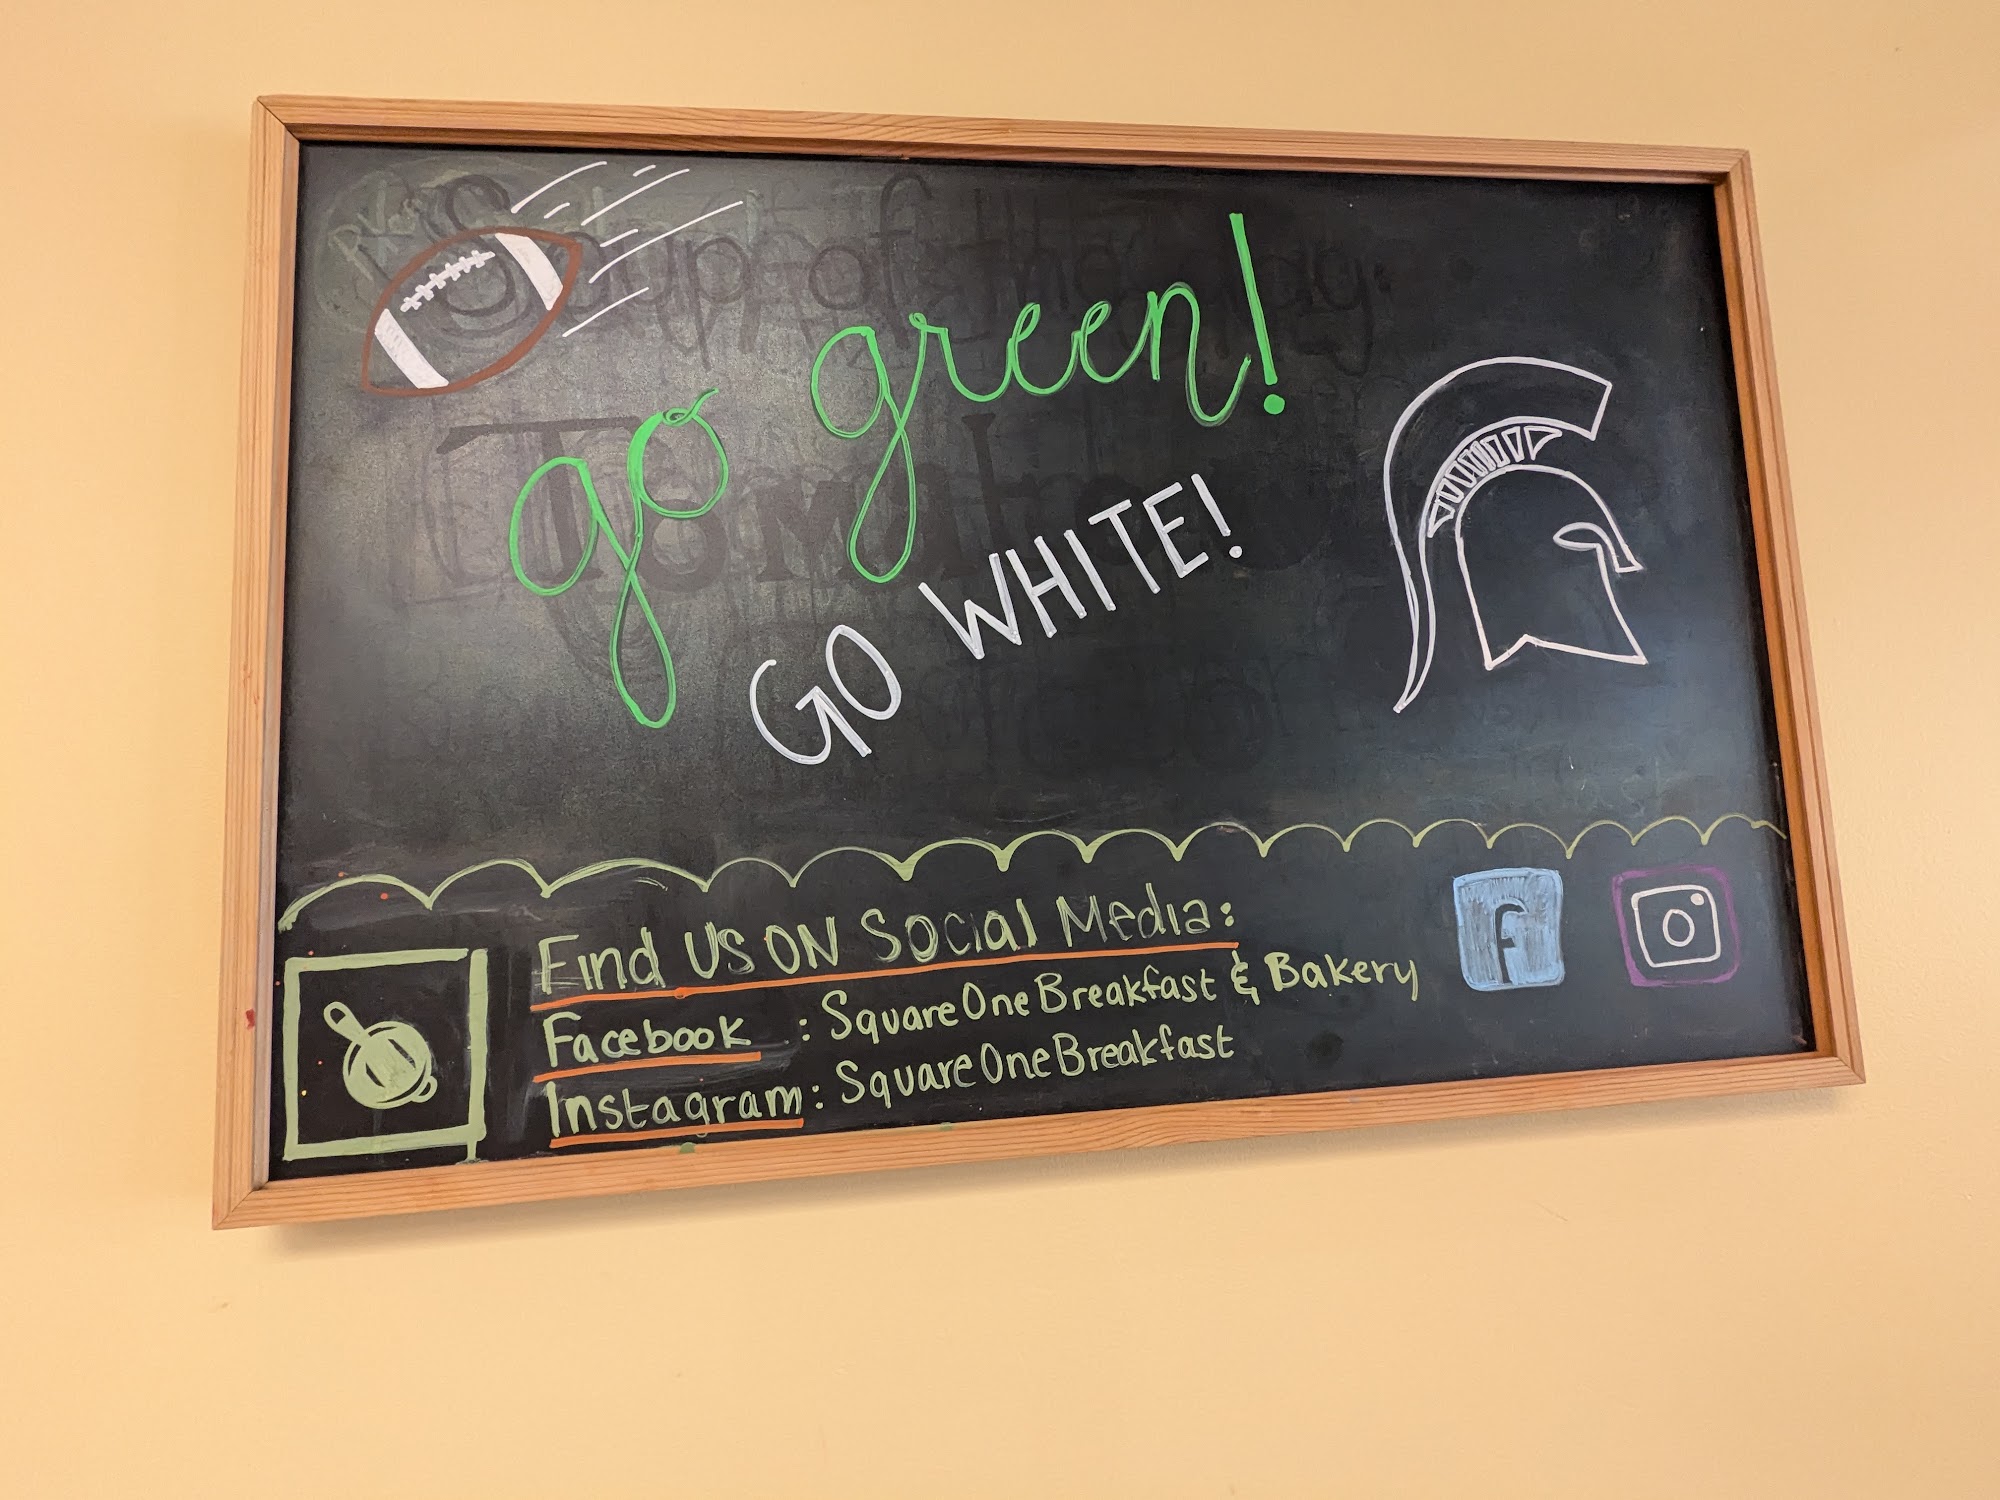 go green!
GO WHITE!
Find US ON Social Media:
Facebook : SquareOneBreakfast & Bakery
Instagram: SquareOneBreakfast
Soup of the day